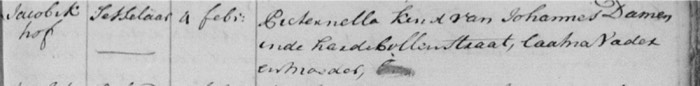 Jacobik Tesselaar 4 febr: Pieternella kind van Johannes Damen
hof inde hardebollenstraat, laatna Vader
en moeder,